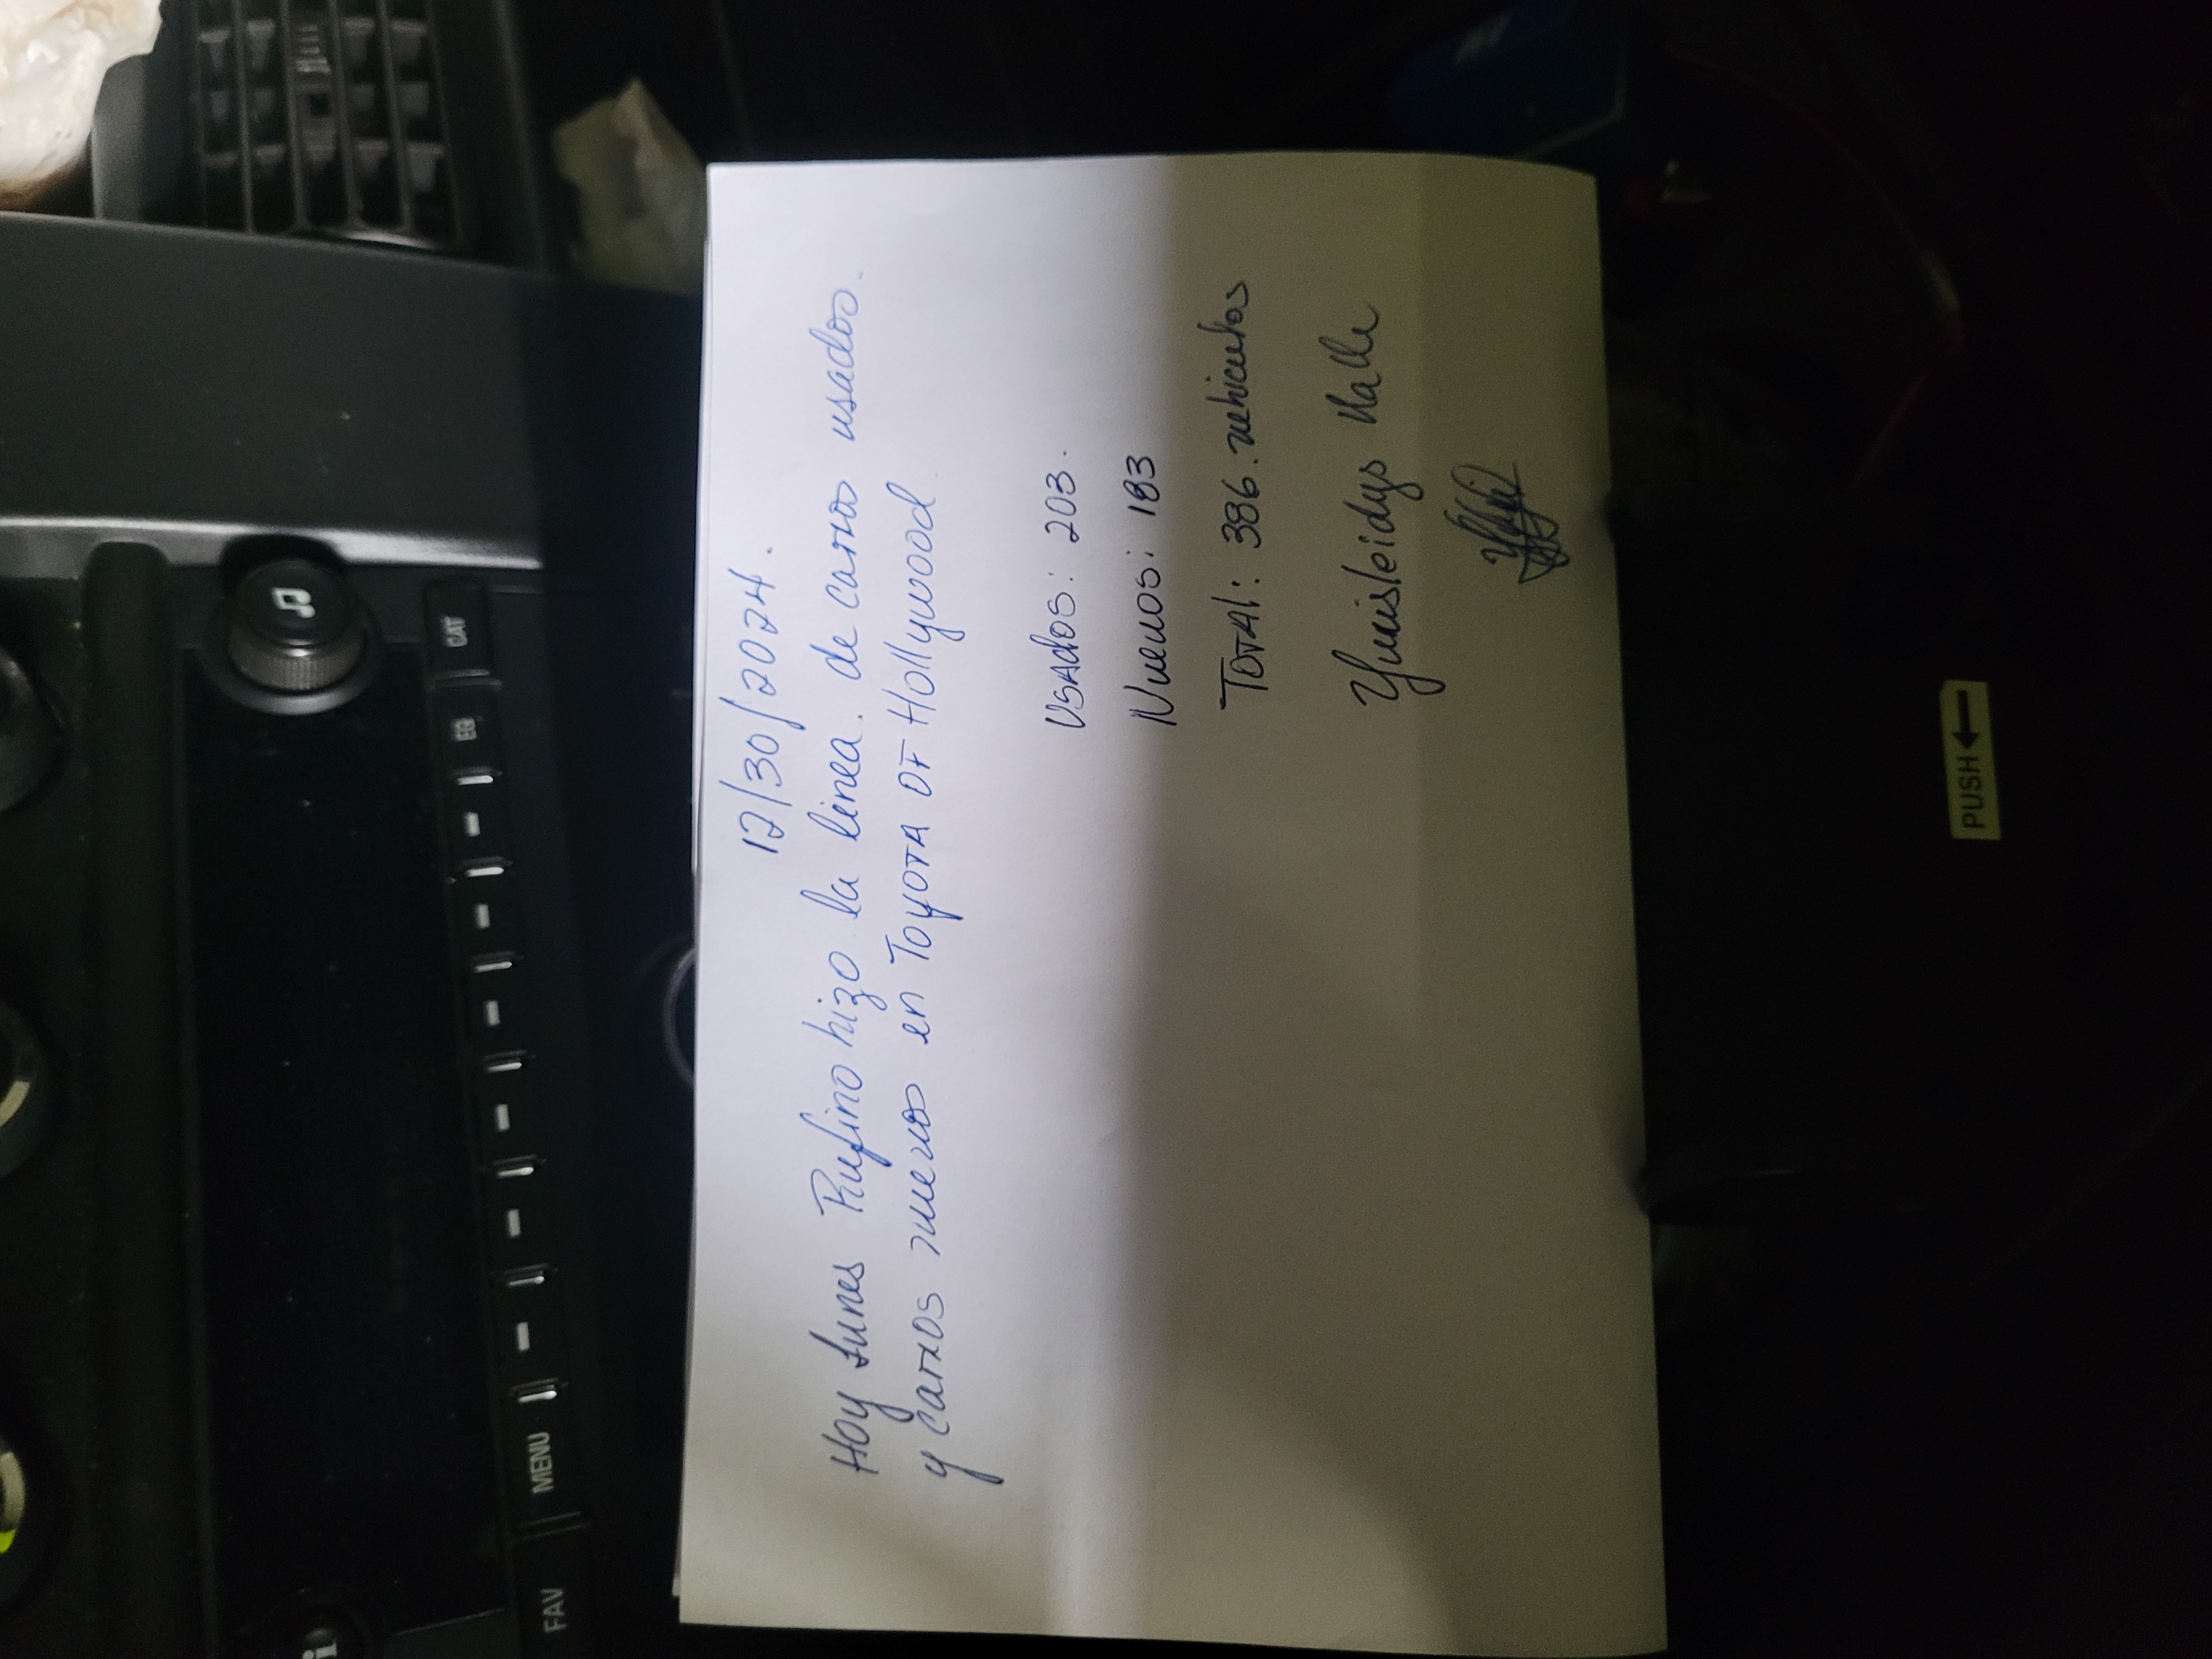 12/30/2024.
Hoy Lunes Rufino hizo la linea. de carros usados.
y carros nuevos en Toyota OF Hollywood.
Usados: 203.
Nuevos: 183
Total: 386. vehiculos
Yunisleidys Valle
PUSH
CAT
EQ
MENU
FAV
i